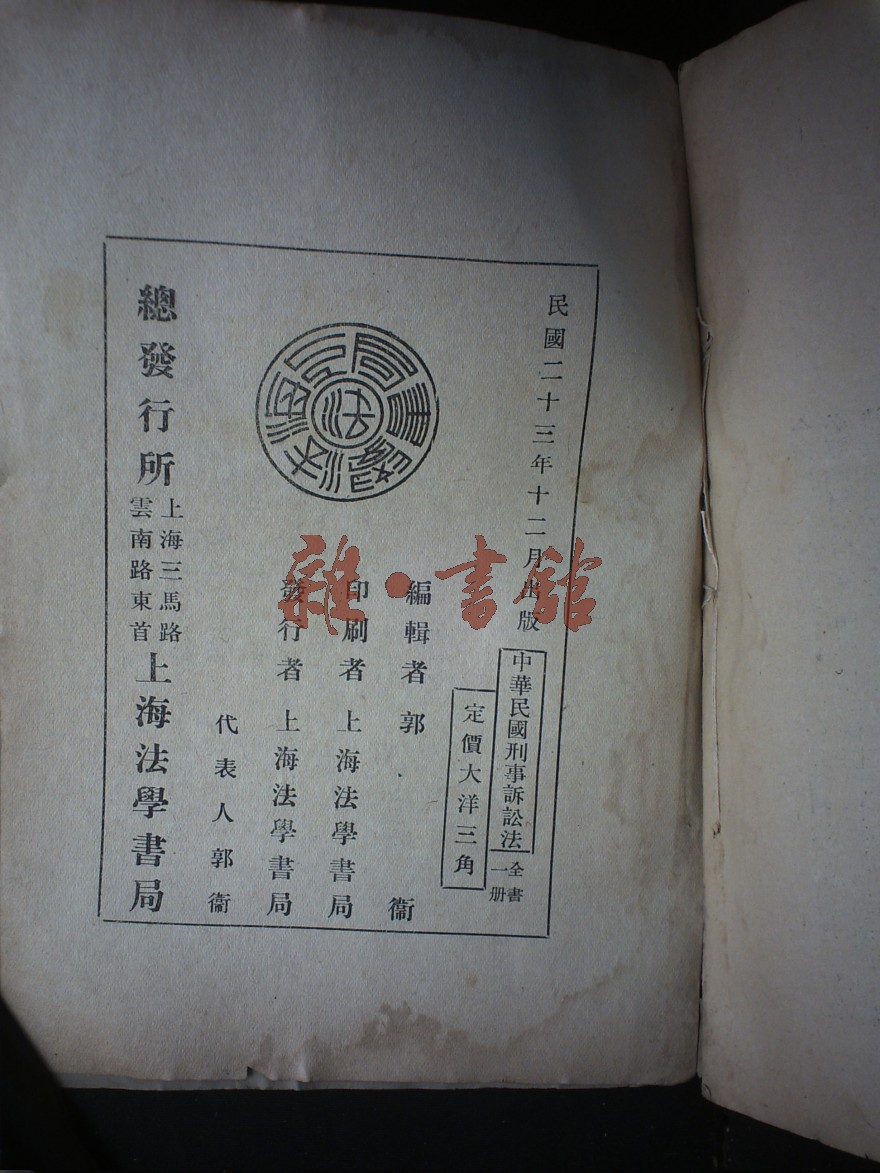 民國二十三年十二月出版
中華民國刑事訴訟法
全書一册
定價大洋三角
編輯者 郭衞
印刷者 上海法學書局
發行者 上海法學書局
代表人郭衞
總發行所
上海三馬路
雲南路東首
上海法學書局
雜·書館